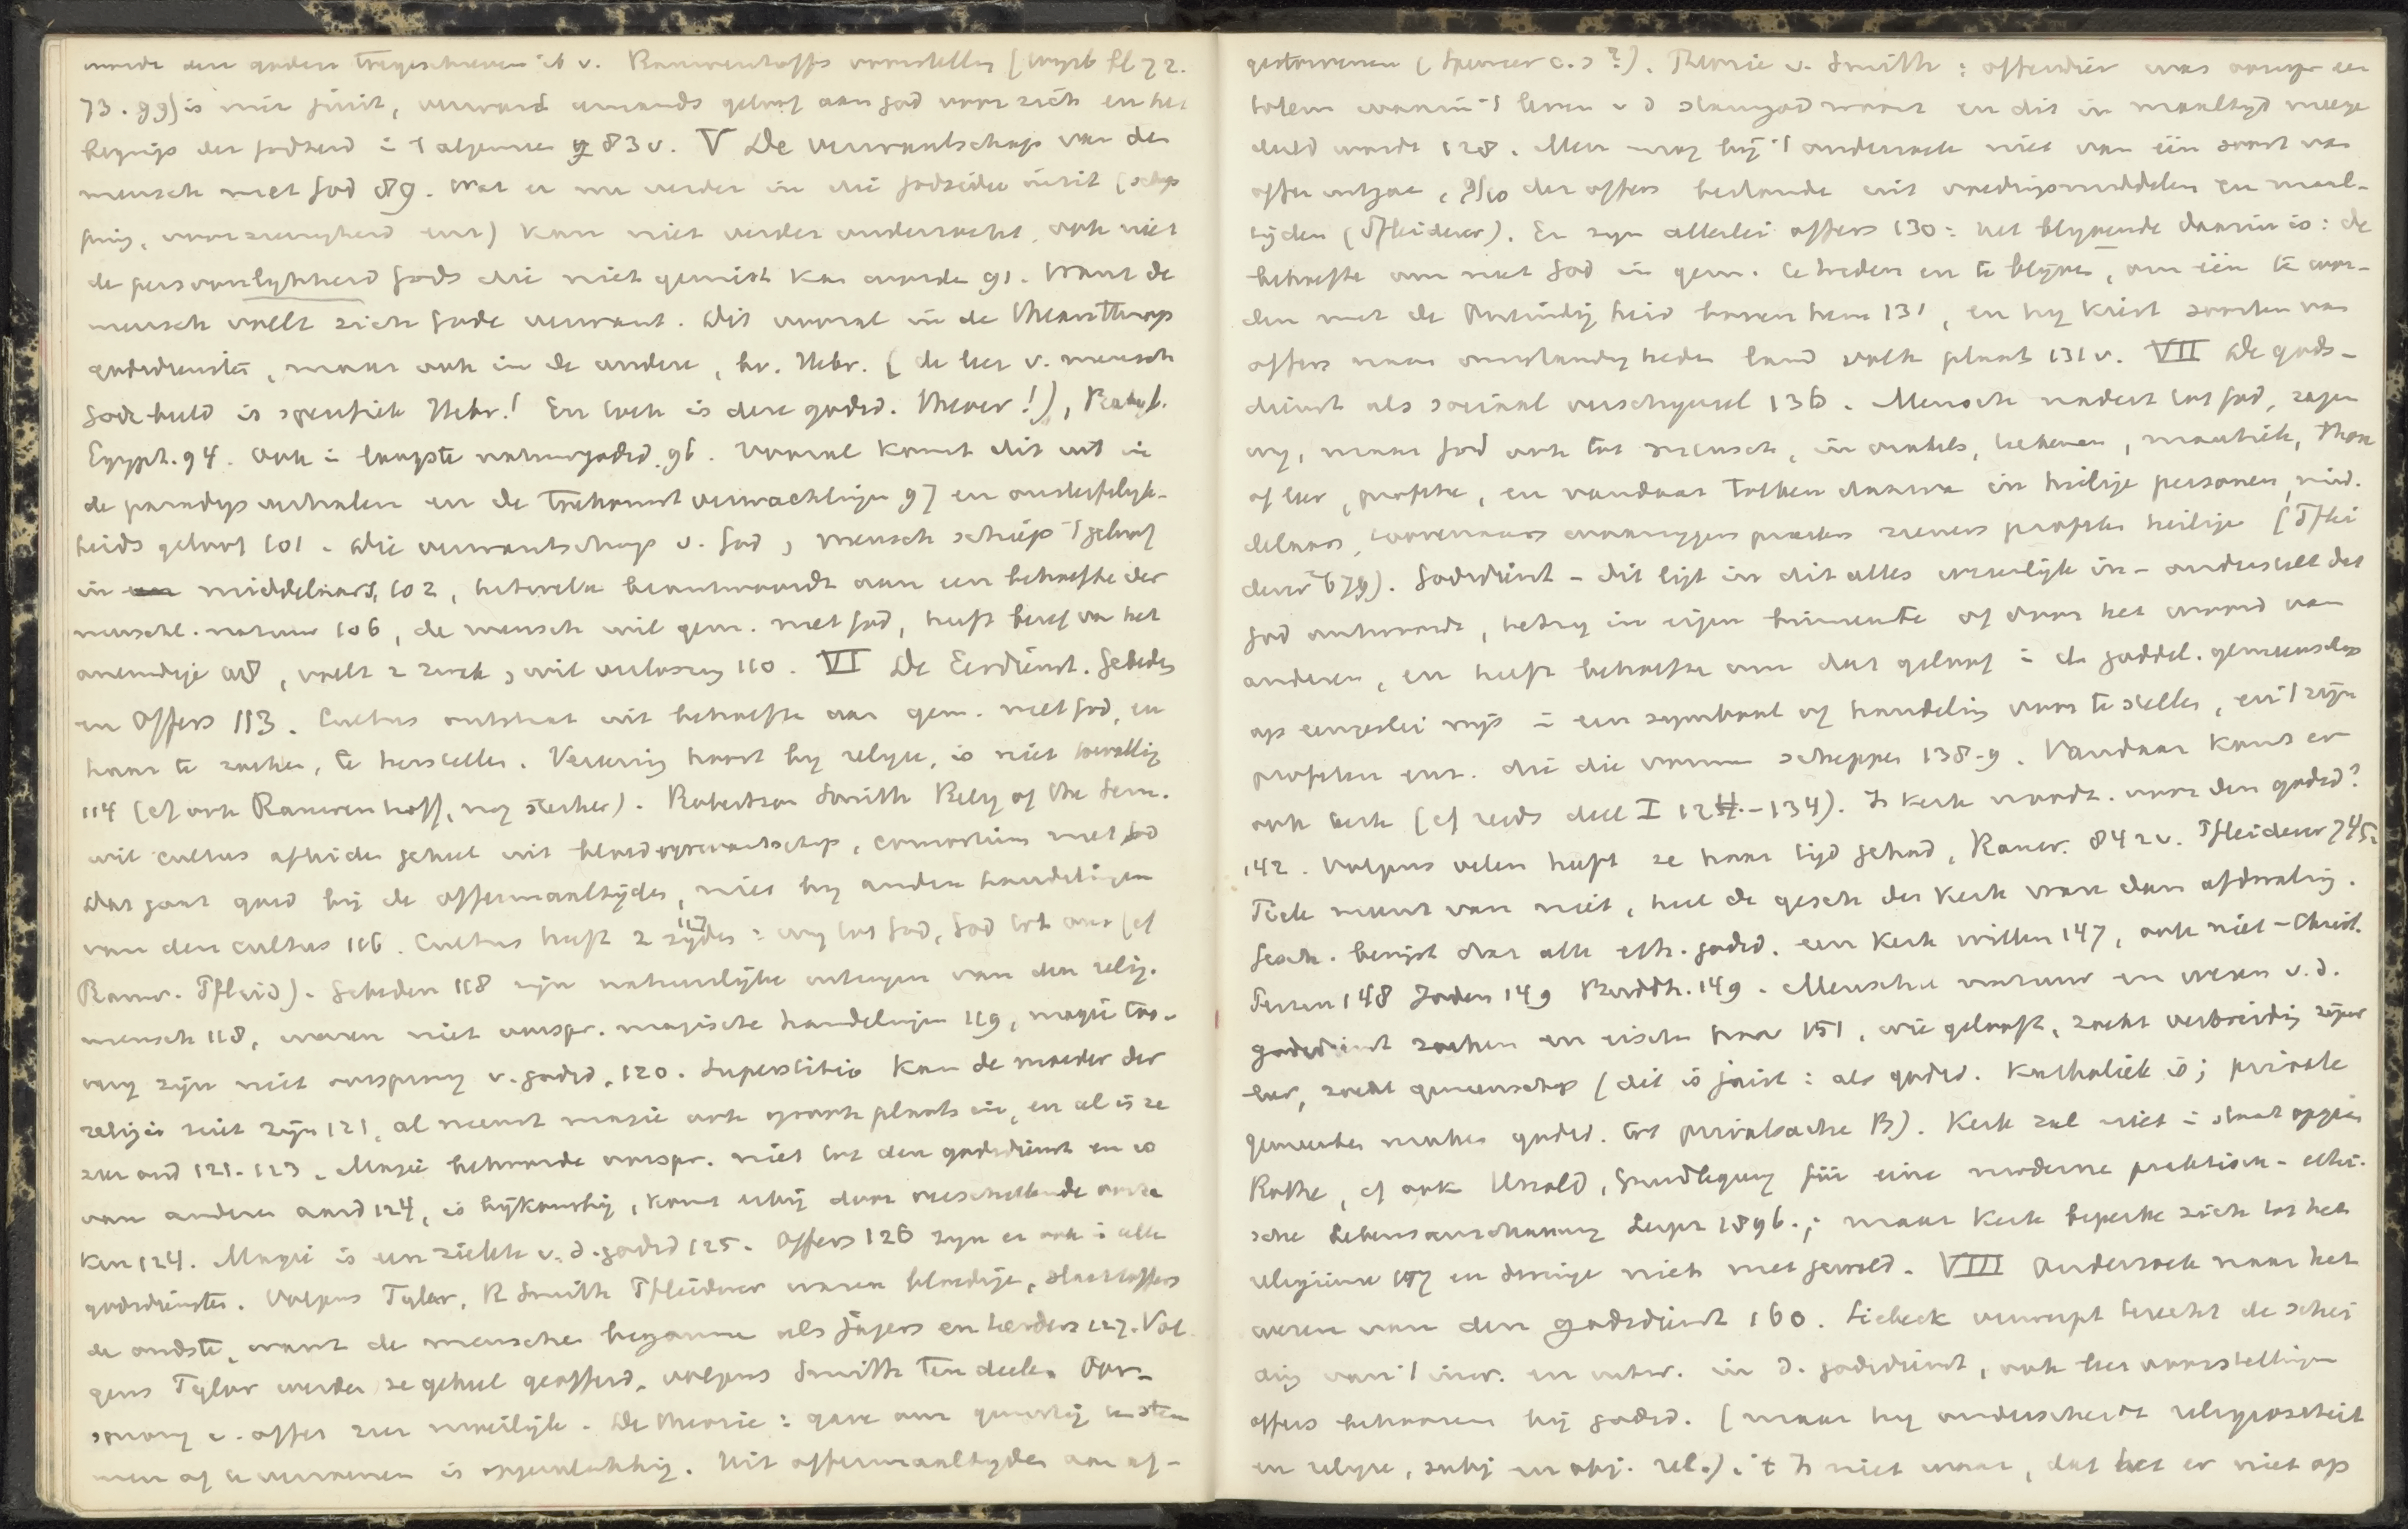 worde den goden toegeschreven ib v. Rauwenhoffs voorstelling (Wijsb bl 72.
73. 99) is niet juist, verward iemands geloof aan God voor zich en het
begrip der godheid i 't algemeen 83 v. V De verwantschap van den
mensch met God 89. Wat er nu verder in die godsidee inzit (schep
ping, voorzienigheid enz) kan niet verder onderzocht, ook niet
de persoonlijkheid Gods die niet gemist kan worden 91. Want de
mensch voelt zich Gode verwant. Dit vooral in de theanthrop
godsdiensten, maar ook in de andere, bv. Hebr. (de leer v. mensch
Gods beeld is specifiek Hebr.! En toch is deze godsd. theocr!), Babyl.
Egypt. 94. Ook i laagste natuurgodsd. 96. Vooral komt dit uit in
de paradijsverhalen en de toekomstverwachtingen 97 en onsterfelijk-
heids geloof 101. Die verwantschap v. God, mensch schiep 't geloof
in middelaars, 102, hetwelk beantwoordt aan een behoefte der
menschl. natuur 106, de mensch wil gem. met God, heeft besef van het
oneindige 108, voelt z zonde, wil verlossing 110. VI De Eerdienst. Gebeden
en Offers 113. Cultus ontstaat uit behoefte aan gem. met God, en
haar te zoeken, te herstellen. Vereering hoort bij religie, is niet toevallig
114 (cf ook Rauwenhoff, nog sterker). Robertson Smith Relig of the Sem.
wil cultus afleiden geheel uit bloedverwantschap, connortium met God
Dat gaat goed bij de offermaaltijden, niet bij andere handelingen
van den cultus 116. Cultus heeft 2 zijden 117: wij tot God, God tot ons (cf
Rauw. Pfleid). Gebeden 118 zijn natuurlijke uitingen van den relig.
mensch 118, waren niet oorspr. magische handelingen 119, magie too-
verij zijn niet oorsprong v. godsd. 120. Superstitio kan de moeder der
religie niet zijn 121, al neemt magie ook groote plaats in, en al is ze
zeer oud 121-123. Magie behoorde oorspr. niet tot den godsdienst en is
van anderen aard 124, is bijkomstig, komt erbij door verschillende oorza
ken 124. Magie is een ziekte v. d. godsd 125. Offers 126 zijn er ook i alle
godsdiensten. Volgens Tylor, R Smith Pfleiderer waren bloedige, slachtoffers
de oudste, want de menschen begonnen als jagers en herders 127. Vol
gens Tylor werden ze geheel geofferd, volgens Smith ten deele. Oor-
sprong v. offer zeer moeilijk. De theorie: gave om gunstig te stem
men of te verzoenen is oppervlakkig. Uit offermaaltijden aan af-
gestorvenen (Spencer c.s?). Theorie v. Smith: offerdier was oorspr een
totem waarin 't leven v d stamgod woont en dit in maaltijd meege
deeld wordt 128. Men mag bij 't onderzoek niet van één soort van
offer uitgaan, 9/10 der offers bestonden uit voedingsmiddelen en maal-
tijden (Pfleiderer). Er zijn allerlei offers 130: het blijvende daarin is: de
behoefte om met God in gem. te treden en te blijven, om één te wor-
den met de Oneindigheid boven hem 131, en hij kiest soorten van
offers naar omstandigheden land volk plaats 131 v. VII De gods-
dienst als sociaal verschijnsel 136. Mensch nadert tot God, zagen
wij, maar God ook tot mensch, in orakels, teekenen, mantiek, thora
of leer, profetie, en vandaar tolken daarva in heilige personen, mid.
delaars, toovenaars waarzeggers priesters zieners profeten heilige (Pflei
derer² 679). Godsdienst - dit ligt in dit alles wezenlijk in - onderstelt dat
God antwoordt, hetzij in eigen binnenste of door het woord van
anderen, en heeft behoefte om dat geloof i de goddel. gemeenschap
op eenigerlei wijs i een symbool of handeling voor te stellen, en 't zijn
profeten enz. die die vormen scheppen 138-9. Vandaar komt er
ook kerk (cf reeds deel I 124-134). Is kerk noodz. voor den godsd?
142. Volgens velen heeft ze haar tijd gehad, Rauw. 842 v. Pfleiderer 745.
Tiele meent van niet, heel de gesch der kerk vraar dan afdwaling.
Gesch. bewijst dat alle eth. godsd. een kerk willen 147, ook niet-Christ.
Perzen 148 Joden 149 Buddh. 149. Menschel natuur en wezen v. d.
godsdienst zoeken en eischen haar 151, wie gelooft, zoekt verbreiding zijner
leer, zoekt gemeenschap (dit is juist: als godsd. katholiek is; private
gemeenten maken godsd. tot privatsache B). Kerk zal niet i staat opgaan
Rothe, cf ook Unold, Grundlegung für eine moderne praktisch-ethi-
sche Lebensanschauung Leipz 1896.; maar kerk beperke zich tot het
religieuse 157 en dwinge niets met geweld. VIII Onderzoek naar het
wezen van den godsdienst 160. Siebeck verwerpt terecht de schei
ding van 't inw. en uitw. in d. godsdienst, ook leer voorstellingen
offers behooren bij godsd. (maar hij onderscheidt religiositeit
en religie, subj en obj. rel.). 't Is niet waar, dat het er niet op